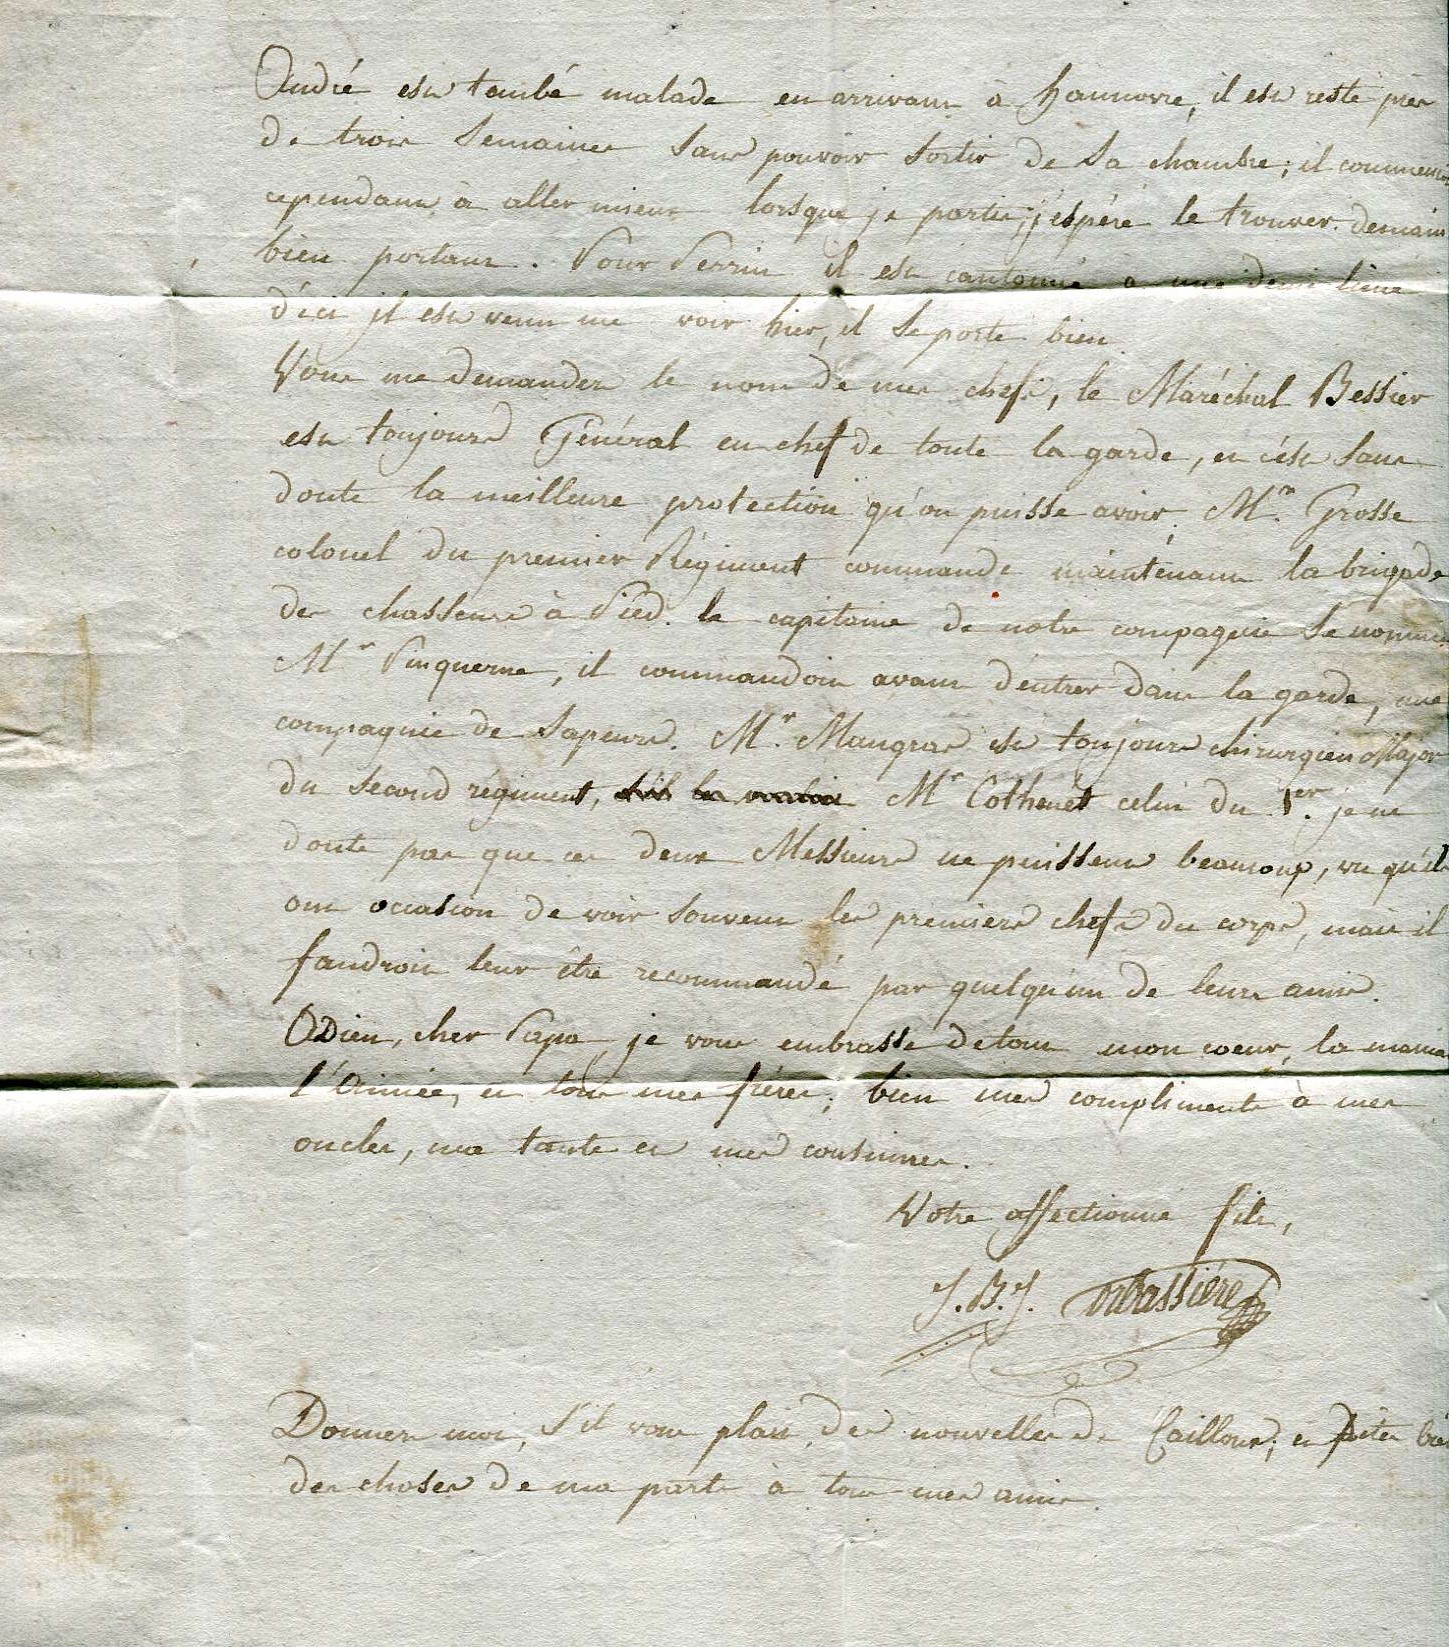 André est tombé malade en arrivant à hannovre, il est resté près
de trois semaines sans pouvoir sortir de sa chambre; il commen
cependant à aller mieux lorsque je partis; j'espère le trouver demain
bien portant. Pour Perrin il est cantonné a une demi lieue
d'ici il est venu me voir hier, il se porte bien
Vous me demandez le nom de mes chefs, le Maréchal Bessier
est toujours Général en chef de toute la garde, et c'est sans
doute la meilleure protection qu'on puisse avoir. Mr. Grosse
colonel du premier Régiment commande maintenant la brigade
des chasseurs à Pied. le capitaine de notre compagnie se nomme
Mr Pinquerne, il commandoit avant d'entrer dans la garde, une
compagnie de Sapeurs. Mr. Maugras est toujours chirurgien Major
du second régiment, Mr Cothenet celui du 1er. je ne
doute pas que ces deux Messieurs ne puissent beaucoup, vu qu'ils
ont occasion de voir souvent les premiers chefs du corps, mais il
faudroit leur être recommandé par quelqu'un de leurs amis.
Adieu, cher Papa je vous embrasse de tout mon coeur, la
l'Aimée, et tous mes frères; bien mes compliments à mes
oncles, ma tante et mes cousines.
Votre affectionné fils,
J. B. J.
Donnez moi, s'il vous plait des nouvelles de Cailloux; et dites bien
des choses de ma part à tous mes amis.